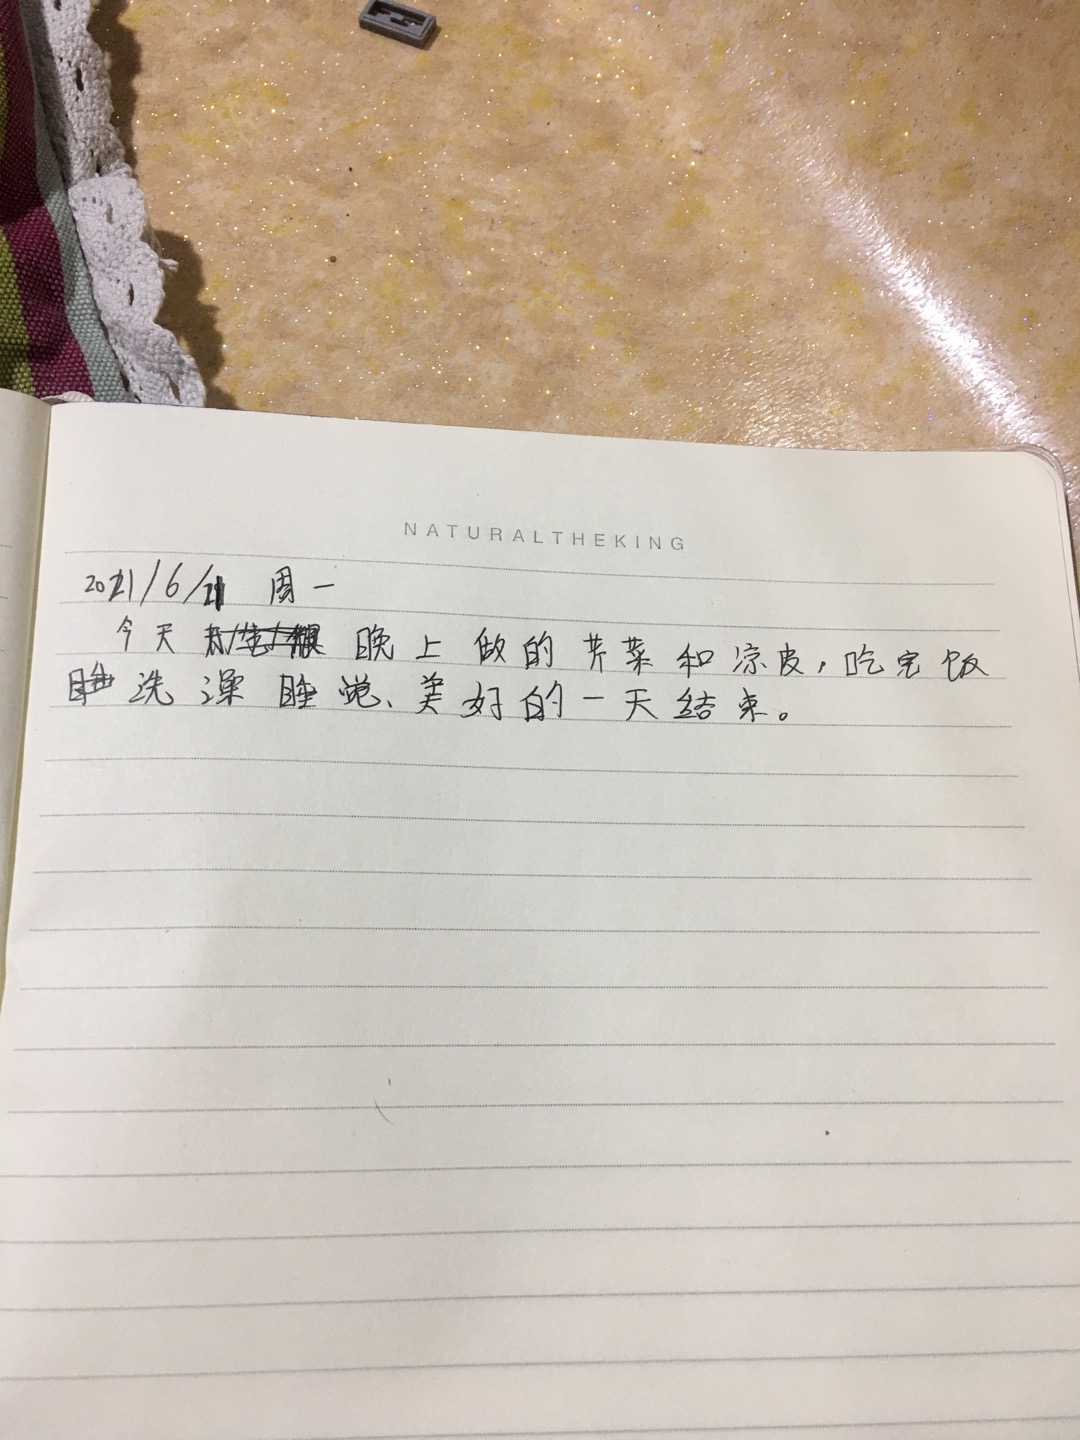 NATURALTHEKING
2021/6/21 周一
今天晚上做的芹菜和凉皮，吃完饭
洗澡睡觉、美好的一天结束。